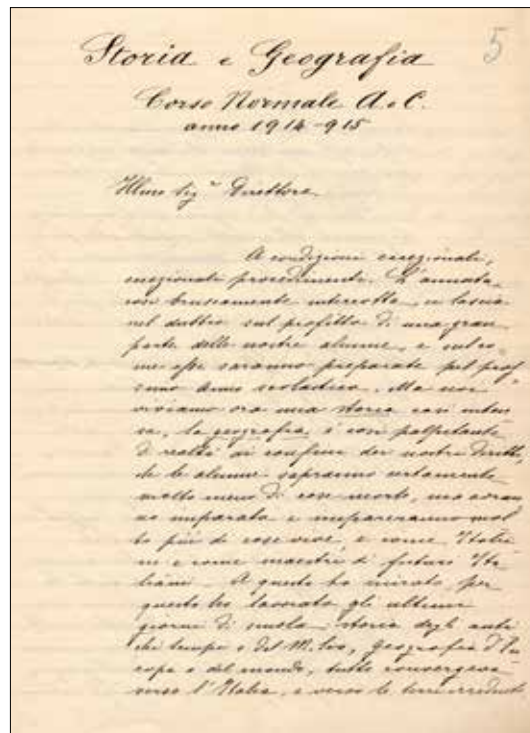 5
Storia e Geografia
Corso Normale A e C.
anno 1914-915
Illmo Sig.r Direttore.
A condizioni eccezionali,
eccezionale procedimento. L'annata
così bruscamente interrotta, ci lascia
nel dubbio sul profitto di una gran
parte delle nostre alunne, e sul co-
me esse saranno preparate pel pros-
simo anno scolastico. Ma noi
viviamo ora una storia così inten
sa, la geografia è così palpitante
di realtà ai confini dei nostri diritti,
che le alunne sapranno certamente
molto meno di cose morte, ma avran
no imparato e impareranno mol
to più di cose vive, e come Italia
ni e come maestri di futuri Ita
liani. A questo ho mirato, per
questo ho lavorato gli ultimi
giorni di scuola: storia degli anti
chi tempi e del M. Evo, geografia d'Eu
ropa e del mondo, tutto convergeva
verso l'Italia, e verso le terre irredente